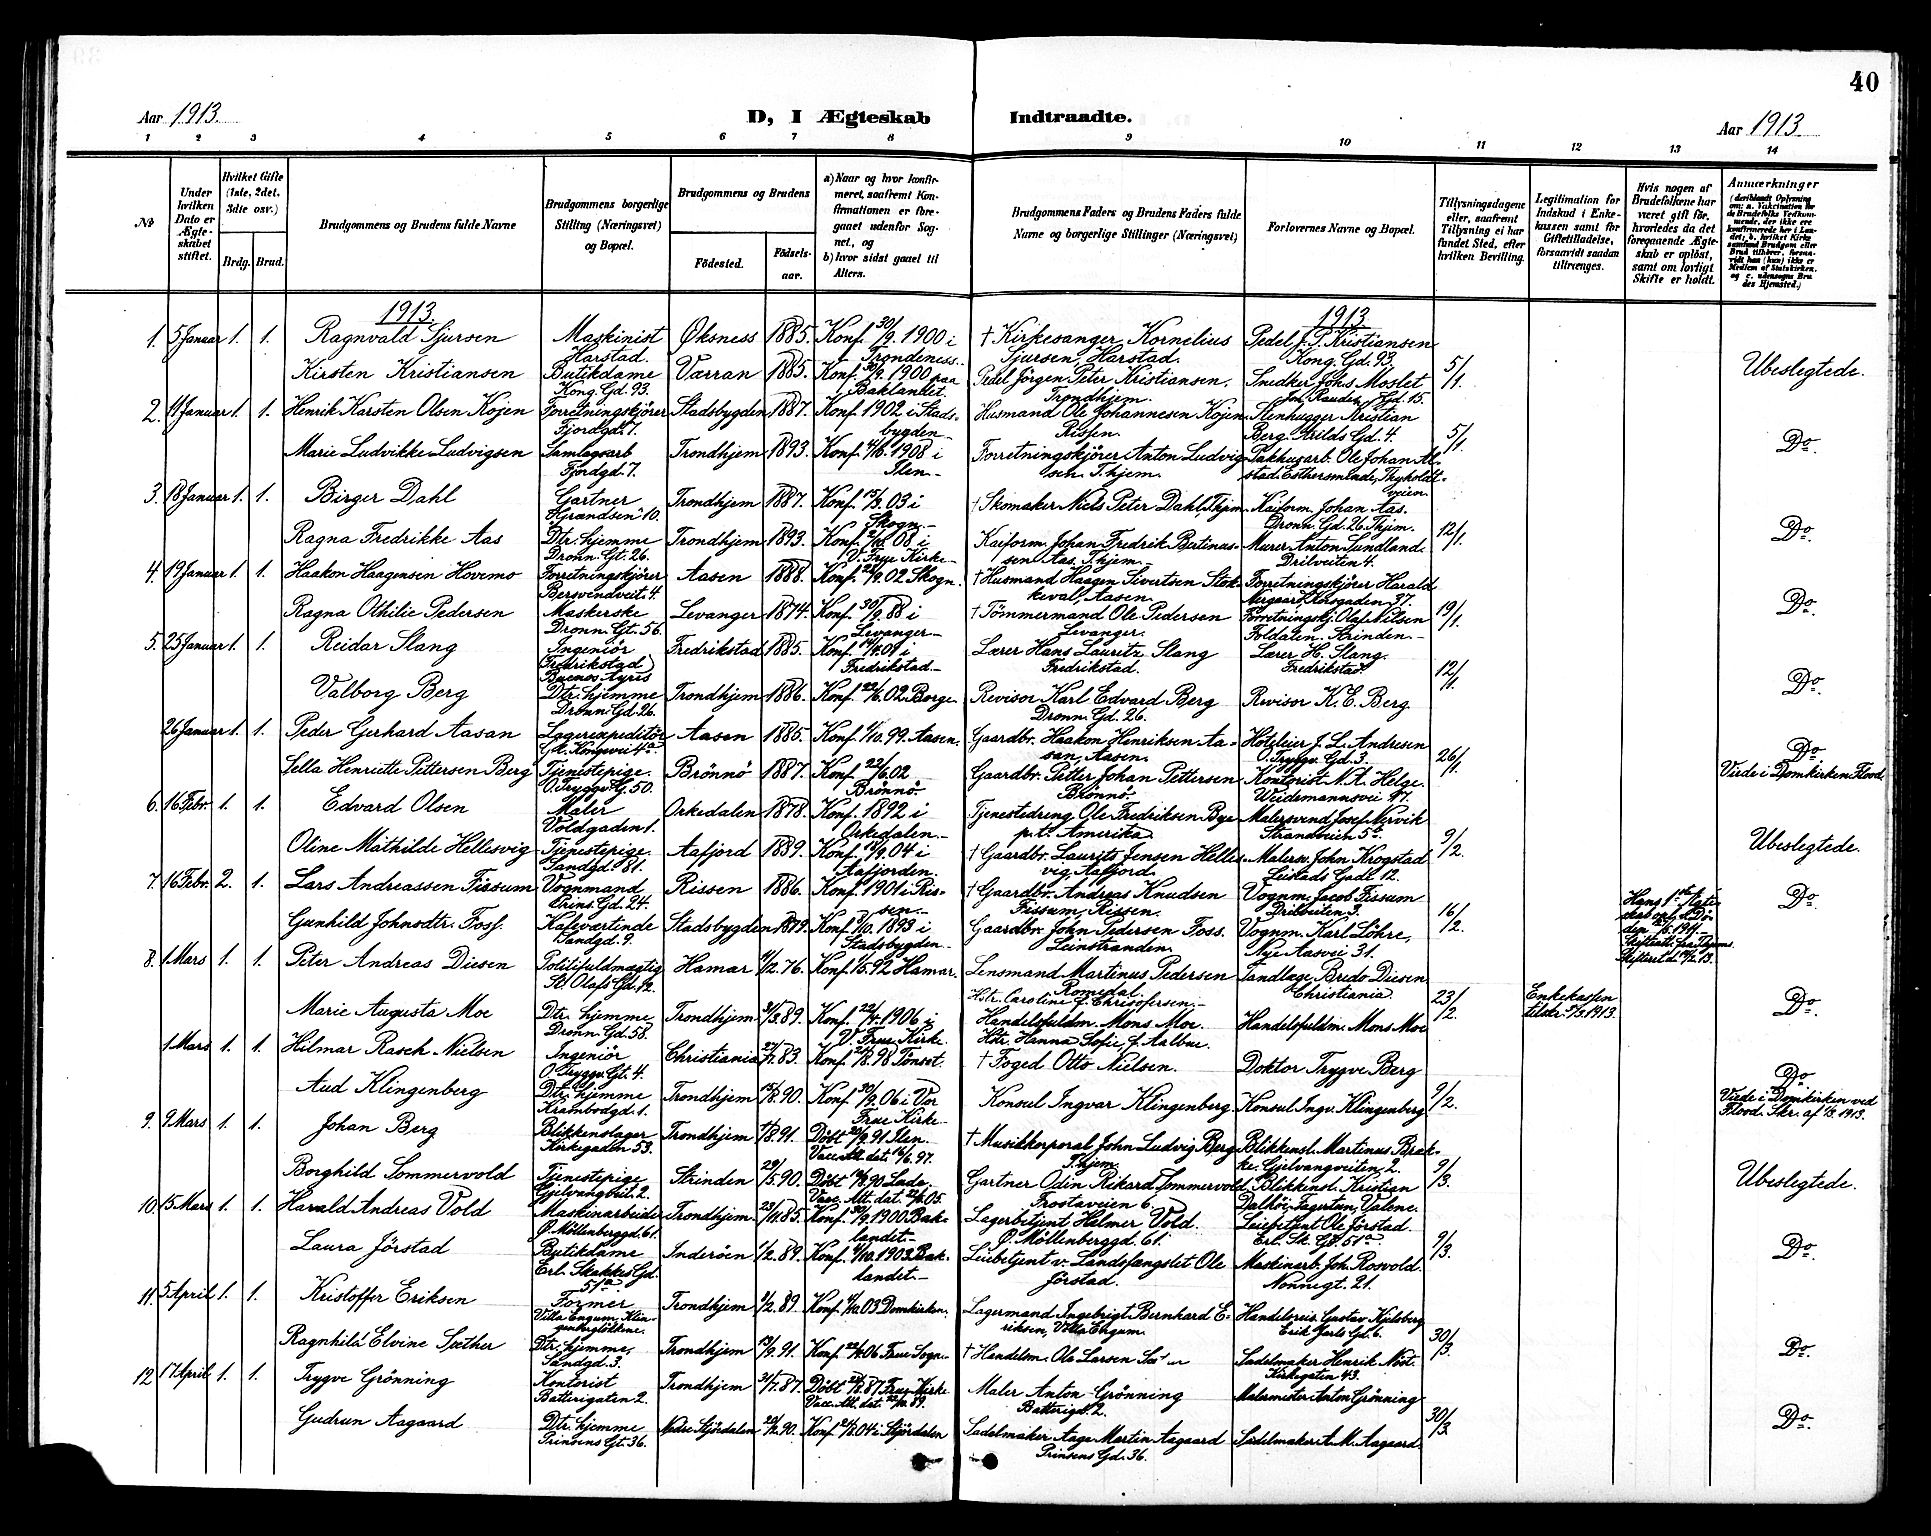 40
Aar 1913.
D, I Ægteskab Indtraadte.
Aar 1913.
1 2 3 4 5 6 7 8 9 10 11 12 13 14
№
Under hvilken Dato er Ægteskabet stiftet.
Hvilket Gifte (1ste, 2det, 3die osv.)
Brdg. Brud.
Brudgommens og Brudens fulde Navne
Brudgommens borgerlige Stilling (Næringsvei) og Bopæl.
Brudgommens og Brudens
Födested.
Födselsaar.
a) Naar og hvor konfirmeret, saafremt Konfirmationen er foregaaet udenfor Sognet, og
b) hvor sidst gaaet til Alters.
Brudgommens Faders og Brudens Faders fulde Navne og borgerlige Stillinger (Næringsvei)
Forlovernes Navne og Bopæl.
Tillysningsdagene eller, saafremt Tillysning ei har fundet Sted, efter hvilken Bevilling.
Legitimation for Indskud i Enkekassen samt for Giftetilladelse, forsaavidt saadan tiltrænges.
Hvis nogen af Brudefolkene har været gift för, hvorledes da det foregaaende Ægteskab er oplöst, samt om lovligt Skifte er holdt.
Anmærkninger
1913. 1913
1. 5 Januar 1. 1. Ragnvald Sjursen Maskinist Harstad. Øksness 1885. Konf. 30/9 1900 i Trondeness. † Kirkesanger Kornelius Sjursen, Harstad. Pedel J. P. Kristiansen Kong. Gd. 93. 5/1. Ubeslegtede.
Kirsten Kristiansen Butikdame Kong. Gd. 93. Værran 1885. Konf. 30/9 1900 paa Baklandet. Pedel Jörgen Peter Kristiansen, Trondhjem. Snedker Johs Moslet
2. 11 Januar 1. 1. Henrik Karsten Olsen Kojen Forretningskjörer Fjordgd. 7. Stadsbygden 1887. Konf. 1902 i Stadsbygden Husmand Ole Johannesen Kojen Rissen. Stenhugger Kristian Berg. Arilds Gd. 4. 5/1. Do.
Marie Ludvikke Ludvigsen Samlagsarb Fjordgd. 7. Trondhjem 1893. Konf. 4/10. 1908 i Ilen Forretningskjörer Anton Ludvigsen T.hjem. Pakhusarb. Ole Johan Alstad Esthersminde, Thykoldtveien
3. 18 Januar 1. 1. Birger Dahl Gartner Trondhjem 1887. Konf. 03 i Skogn. † Skomaker Niels Peter Dahl Thjem Kaiform. Johan Aas. Dronn. Gd. 26. Thjm. 12/1. Do.
Ragna Fredrikke Aas Dtr. hjemme Dronn. Gt. 26. Trondhjem 1893. Konf. 08 i V. Frue Kirke Kaiform. Johan Fredrik Bertinussen Aas. T.hjem. Murer Anton Sundland. Drilveiten 4.
4. 19 Januar 1. 1. Haakon Haagensen Hovemo Forretningskjörer Bersvendveit. 4. Aasen 1888. Konf. 02 Skogn. † Husmand Haagen Sivertsen Stokkeval, Aasen. Forretningskjörer Harald Korsgaden 37. 19/1. Do.
Ragna Othilie Pedersen Maskerske Dronn. Gt. 56. Levanger 1874. Konf. 30/9. 88 i Levanger † Tömmermand Ole Pedersen Levanger. Forretningskj. Olaf Nilsen Foldalen. Strinden
5. 25 Januar 1. 1. Reidar Slang Ingeniör (Fredrikstad) Buenos Ayres Fredrikstad 1885. Konf. 01 i Fredrikstad Lærer Hans Lauritz Slang Fredrikstad. Lærer H. Slang. Fredrikstad 12/1. Do.
Valborg Berg Dtr. hjemme Dronn Gd 26. Trondhjem 1886. Konf. 22/6. 02 Borge Revisor Karl Edvard Berg Dronn. Gd. 26. Revisor K. E. Berg
26 Januar 1. 1. Peder Gerhard Aasan Lagerexpeditör Gk. Kongevei 4a Aasen 1885. Konf. 1/10. 99. Aasen. Gaardbr. Haakon Henriksen Aasan, Aasen. J. L. Andresen O. Tryggv. Gd. 3. 26/1. Do. Viede i Domkirken Flood
Sella Henriette Pettersen Berg Tjenestepige. O. Tryggv. G. 50. Brönnö 1887. Konf. 22/6. 02 Brönnö Gaardbr. Petter Johan Pettersen Brönnö. Kontorist N. A. Helge. Weidemannsvei 17.
6. 16 Febr. 1. 1. Edvard Olsen Maler Voldgaden 1. Orkedalen 1878. Konf. 1892 i Orkedalen Tjenestedreng Ole Fredriksen Bye p.t. Amerika Malersvend Josef Nervik Strandveien 5a. 9/2. Ubeslegtede.
Oline Mathilde Hellesvig Tjenestepige. Sandgd. 81. Aafjord 1889. Konf. 04 i Aafjorden. † Gaardbr. Laurits Jensen Hellesvig, Aafjord. Malersv. John Krogstad Leistads Gadl. 12.
7. 16 Febr. 2. 1. Lars Andreassen Fissum Vognmand Prins. Gd. 24. Rissen 1886. Konf. 1901 i Rissen † Gaardbr. Andreas Knudsen Fissum, Rissen. Vognm. Jacob Fissum Drilveiten 3. 16/2. Hans 1ste Ægteskab opl. v. Döden Skifteatt. fra Thjems Skifteret Do.
Gunhild Johnsdtr. Foss. Kafeværtinde Sandgd. 9. Stadsbygden 1879. Konf. 1893 i Stadsbygden Gaardbr. John Pedersen Foss. Leinstranden. Vognm. Karl Löhre, Nye Aasvei 31.
8. 1 Mars 1. 1. Peter Andreas Diesen Politifuldmægtig St. Olafs Gd. 12. Hamar 4/12. 76. Konf. 1/5. 92 Hamar. Lensmand Martinus Pedersen Romedal. Hstr. Caroline f. Chrisofersen. Tandlæge Bredo Diesen Christiania. 23/2. Enkekassen tilstr. 5/3 1913. Do.
Marie Augusta Moe Dtr. hjemme Dronn. Gd. 58. Trondhjem 31/3. 89. Konf. 22/4. 1906 i V. Frue Kirke. Handelsfuldm. Mons Moe. Hstr. Hanna Sofie, f. Aalbue. Handelsfuldm. Mons Moe
1 Mars 1. 1. Hilmar Rasch-Nielsen Ingeniör O. Tryggv. Gt. 4. Christiania 83. Konf. 98 Tönset. † Foged Otto Nielsen. Doktor Trygve Berg 9/2. Do Viede i Domkirken ved Flood. Skr. af 1/3 1913.
Aud Klingenberg Dtr. hjemme Krambodgd. 1. Trondhjem 15/8. 90. Konf. 30/9. 06 i Vor Frue Kirke Konsul Ingvar Klingenberg Konsul Ingv. Klingenberg
9. 9 Mars 1. 1. Johan Berg Blikkenslager Kirkegaden 53. Trondhjem 11/8. 91. Döbt 20/9. 91 Ilen. Vacc. Att. dat. 16/6. 97. † Musikkorporal John Ludvig Berg T.hjem. Blikkensl. Martinus Brække. Gjelvangveiten 2. 9/3. Ubeslegtede.
Borghild Sommervold Tjenestepige Gjelvangveit. 2. Strinden 29/5. 90. Döbt 90 Lade. Vacc. Att. dat. 05. Gartner Odin Rikard Sommervold Frostaveien 6. Blikkensl. Kristian Dalhöi, Fagertun, Valene.
10. 15 Mars 1. 1. Harald Andreas Vold Maskinarbeider Ø. Möllenberggd. 61. Trondhjem 23/11. 85. Konf. 30/9. 1900 Baklandet Lagerbetjent Helmer Vold. Ø. Möllenberggd. 61. Leiebetjent Ole Jörstad. Erl. Sk. Gd. 51a. 9/3. Do.
Laura Jörstad Butikdame Erl. Skakkes Gd. 51a Inderöen 1/2. 89. Konf. 4/10. 1903 Baklandet. Leiebetjent v. Landsfængslet Ole Jörstad. Maskinarb. Joh. Rosvold. Nonnegt. 21.
11. 5 April 1. 1. Kristoffer Eriksen Former Villa Engum, Klingenbergløkkene. Trondhjem 1/2. 89. Konf. 4/10. 03 Domkirken. Lagermand Ingebrigt Bernhard Eriksen, Villa Engum. Handelsreis. Gustav Kjelsberg Erik Jarls Gd. 6. 30/3. Do.
Ragnhild Elvine Sæther Dtr. hjemme, Sandgd. 3. Trondhjem 13/9. 91. Konf. 22/4. 06 Frue Sogn. † Handelsm. Ole Larsen Sadelmaker Henrik Nöst. Kirkegaten 43.
12 17 April 1. 1. Trygve Grönning Kontorist Batterigaten 2. Trondhjem 31/7. 87. Döbt 87 Frue Kirke Vacc. Att. dat. 89. Maler Anton Grönning Batterigt. 2. Malermester Anton Grönning 30/3. Do.
Gudrun Aagaard Dtr. hjemme Prinsens Gt. 36. Nedre Stjördalen 90. Konf. 04 i Stjördalen Sadelmaker Aage Martin Aagaard Prinsens Gd. 36. Sadelmaker A. M. Aagaard.